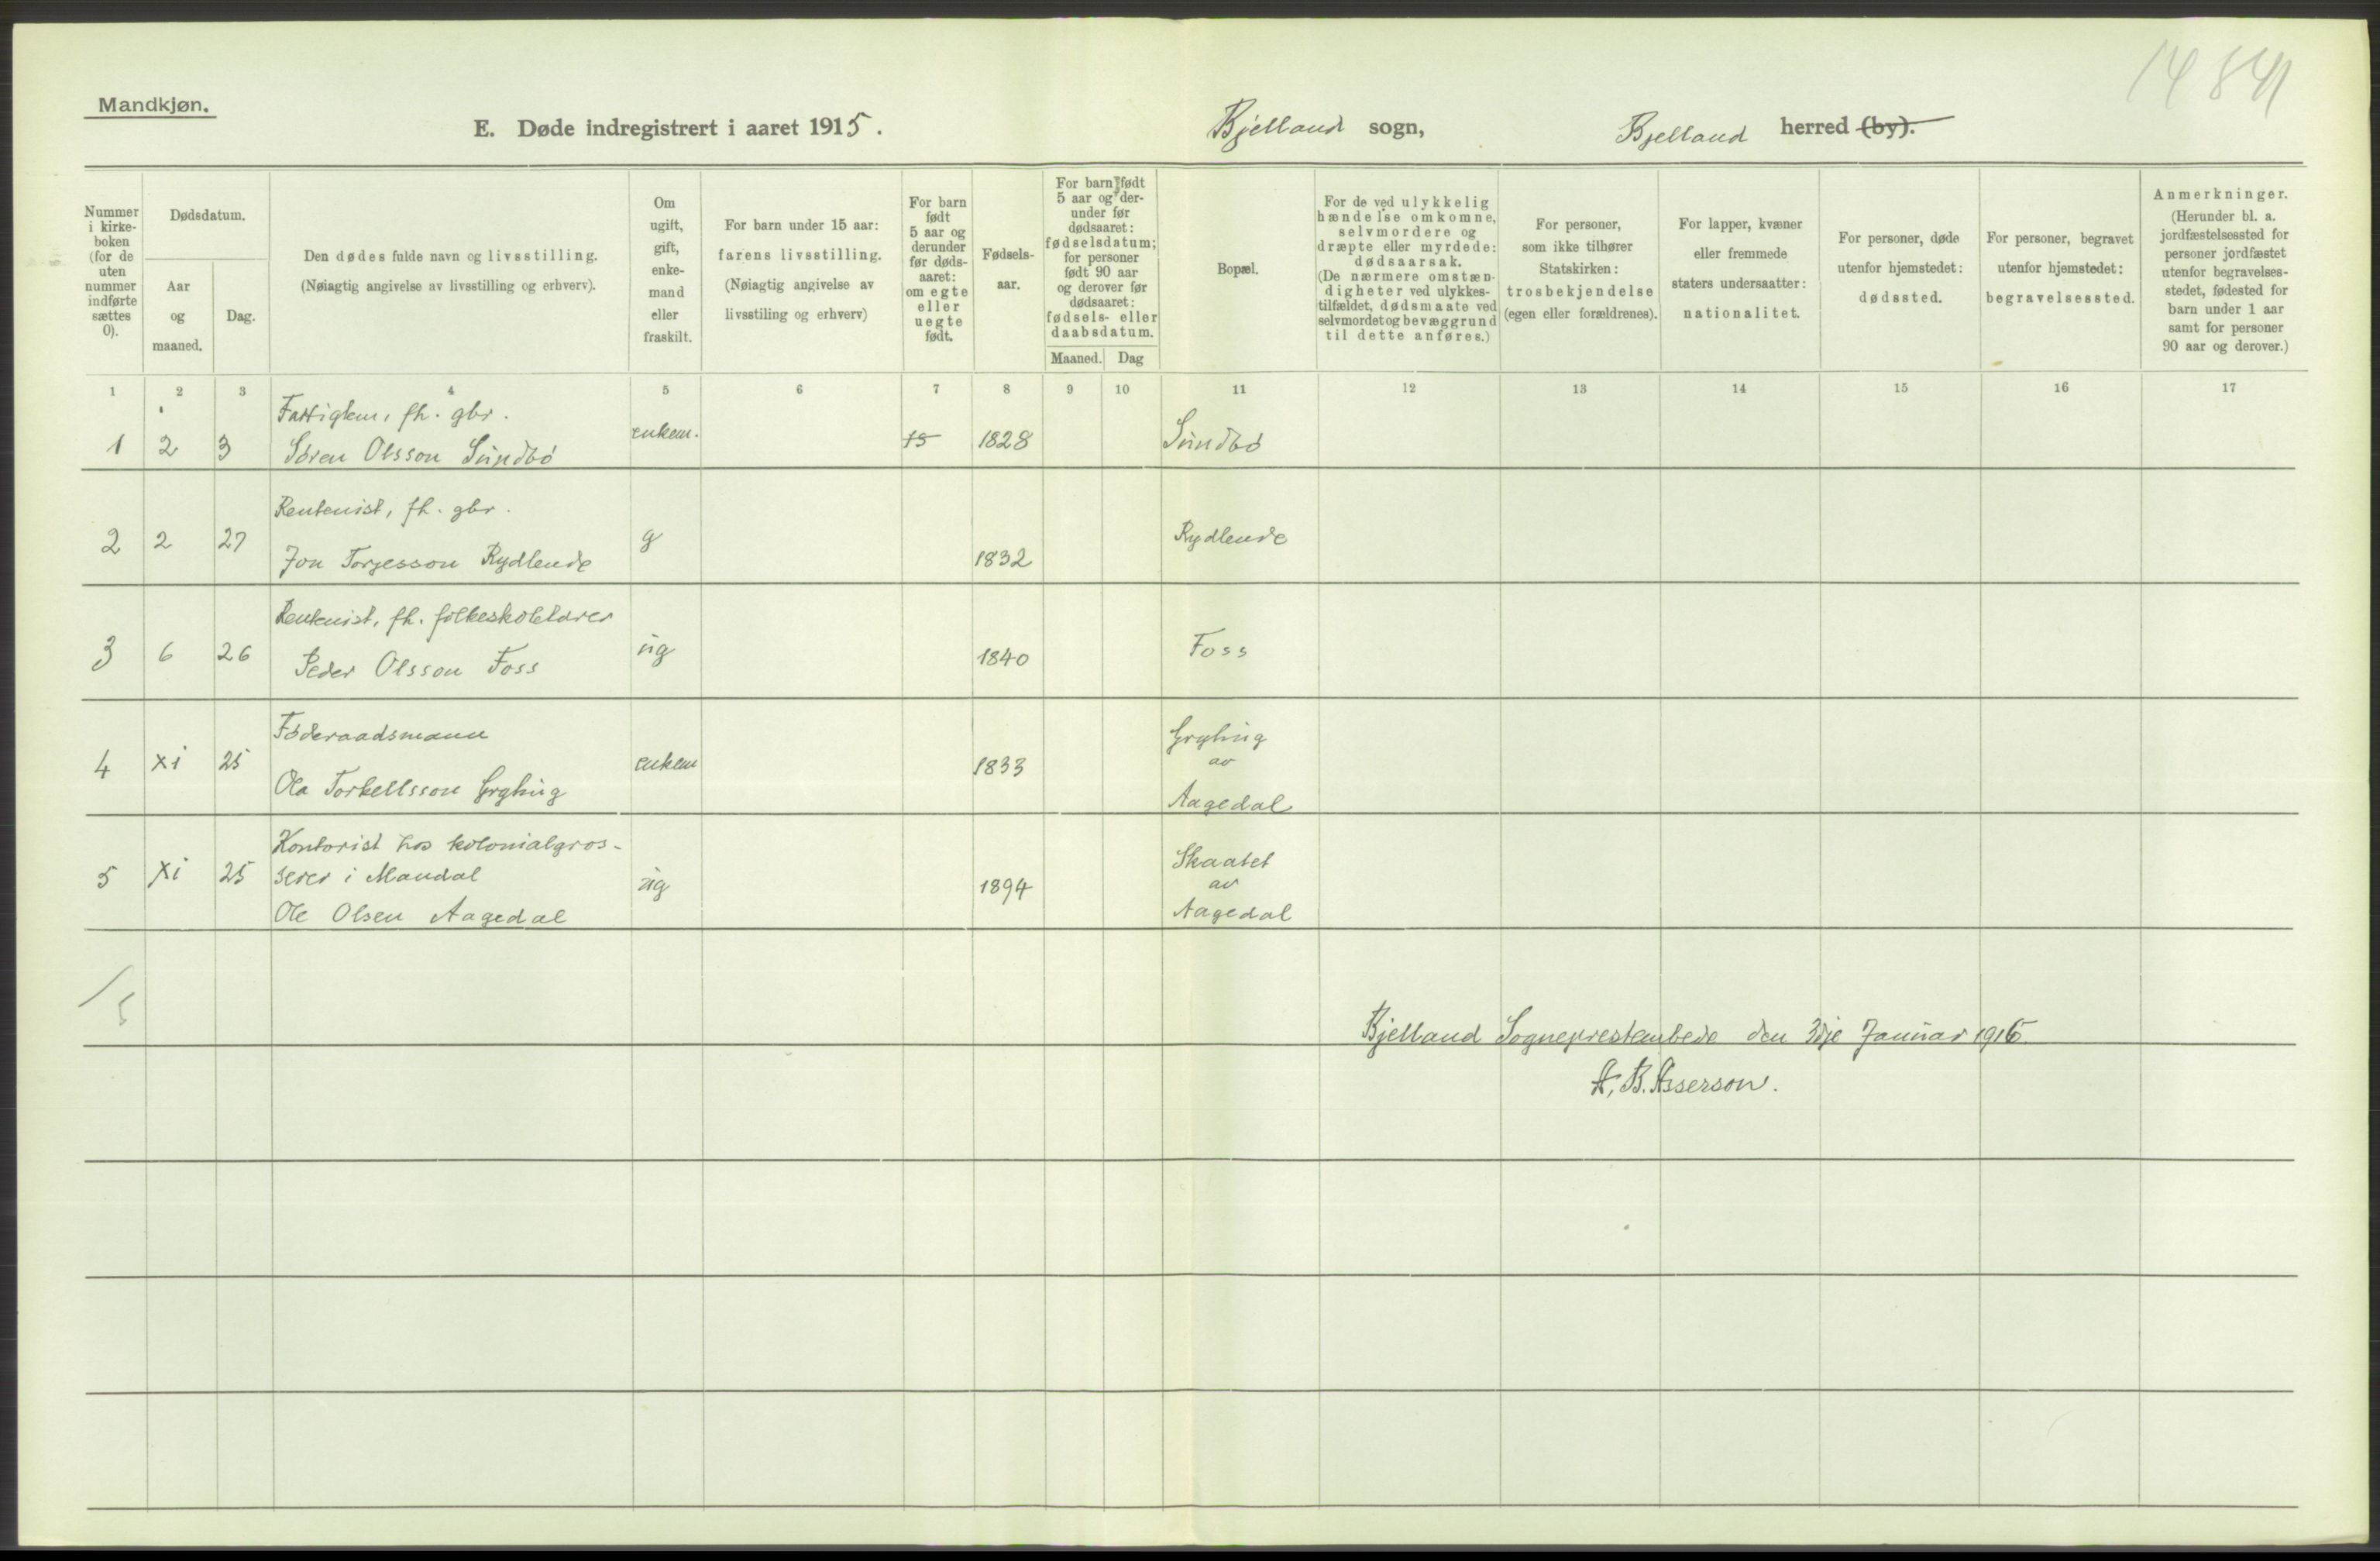 14841
Mandkjøn.
E. Døde indregistrert i aaret 1915. Bjelland sogn, Bjelland herred (by).
Nummer i kirke-boken (for de uten nummer indførte sættes 0).
Dødsdatum.
Aar og maaned.
Dag.
Den dødes fulde navn og livsstilling.
(Nøiagtig angivelse av livsstilling og erhverv).
Om ugift, gift, enke-mand eller fraskilt.
For barn under 15 aar:
farens livsstilling.
(Nøiagtig angivelse av
livsstiling og erhverv)
For barn født 5 aar og derunder før døds-aaret: om egte eller uegte født.
Fødsels-aar.
For barn født 5 aar og der-under før dødsaaret: fødselsdatum; for personer født 90 aar og derover før dødsaaret: fødsels- eller daabsdatum.
Maaned. Dag
Bopæl.
For de ved ulykkelig hændelse omkomne, selvmordere og dræpte eller myrdede: dødsaarsak. (De nærmere omstæn-digheter ved ulykkes-tilfældet, dødsmaate ved selvmordet og bevæggrund til dette anføres.)
For personer, som ikke tilhører Statskirken: trosbekjendelse (egen eller forældrenes).
For lapper, kvæner eller fremmede staters undersaatter: nationalitet.
For personer, døde utenfor hjemstedet: dødssted.
For personer, begravet utenfor hjemstedet: begravelsessted.
Anmerkninger. (Herunder bl. a. jordfæstelsessted for personer jordfæstet utenfor begravelses-stedet, fødested for barn under 1 aar samt for personer 90 aar og derover.)
1 2 3 4 5 6 7 8 9 10 11 12 13 14 15 16 17
Fattiglem, fh. gbr.
1 2 3 Søren Olsson Sundbø enkem. 15 1828 Sundbø
Rentenist, fh. gbr.
2 2 27 Jon Torjesson Rydlende g 1832 Rydlende
Rentenist, fh. folkeskolelærer
3 6 26 Peder Olsson Foss ug 1840 Foss
Føderaadsmann Gryting
4 XI 25 enkem 1833 av
Ola Torkellsson Gryting Aagedal
Kontorist hos kolonialgros-
5 XI 25 serer i Mandal ug 1894 Skaatet av
Ole Olsen Aagedal Aagedal
/5
Bjelland Sogneprestembede den 3dje Januar 1916.
A. B. Asserson.